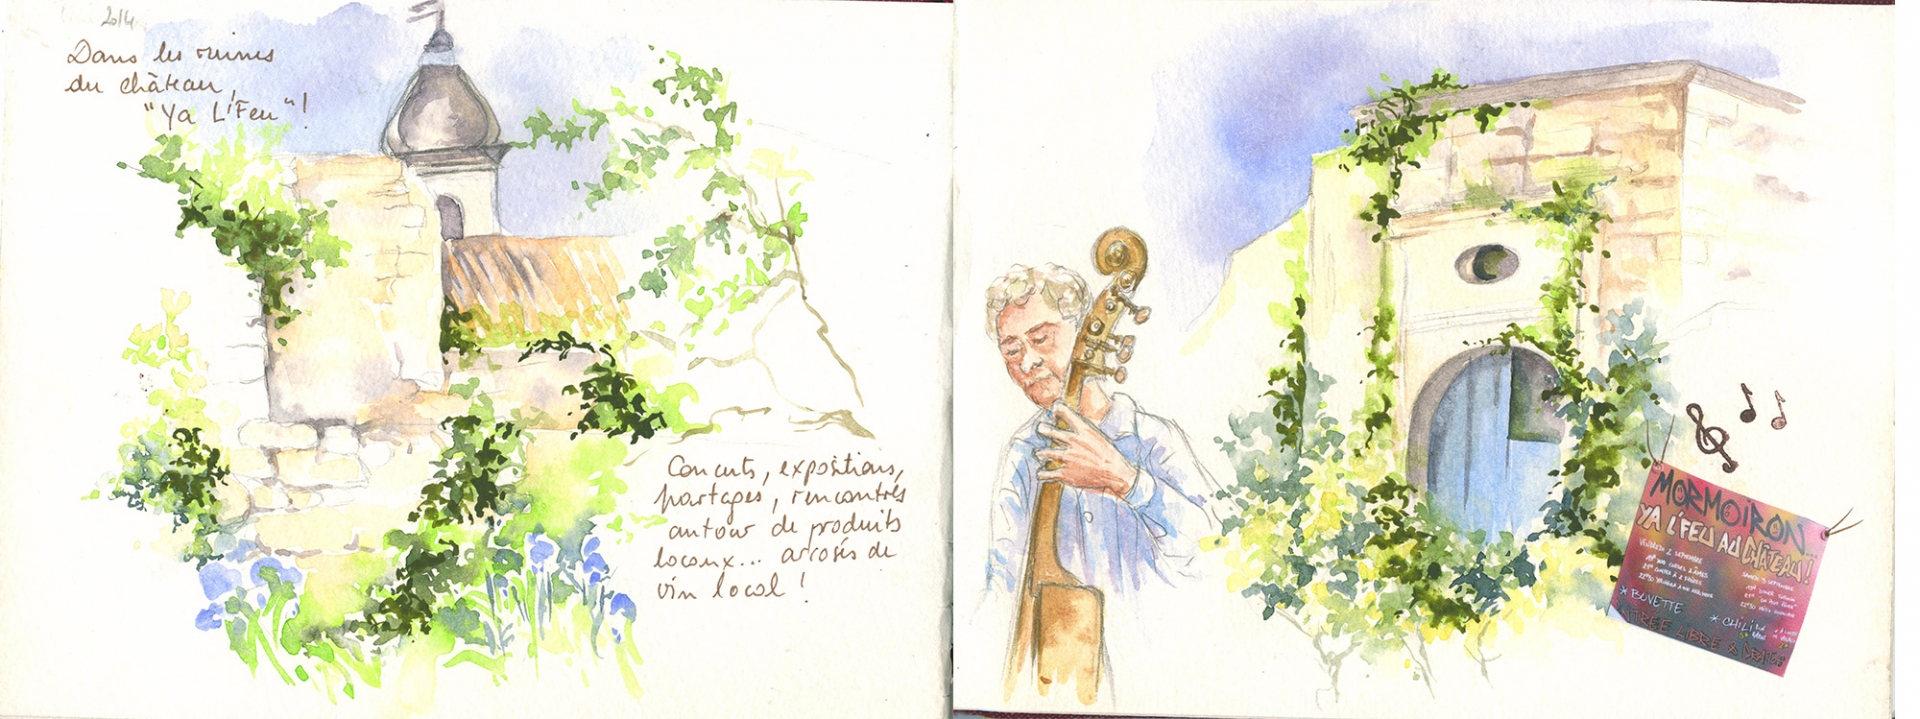 2014
Dans les ruines
du château,
"Ya L'Feu"!
Concerts, expositions,
partages, rencontres
autour de produits
locaux... arrosés de
vin local !
MORMOIRON...
YA L'FEU AU CHÂTEAU!
VENDREDI 2 SEPTEMBRE
SAMEDI 3 SEPTEMBRE
* BUVETTE
* CHILI
ENTREE LIBRE &